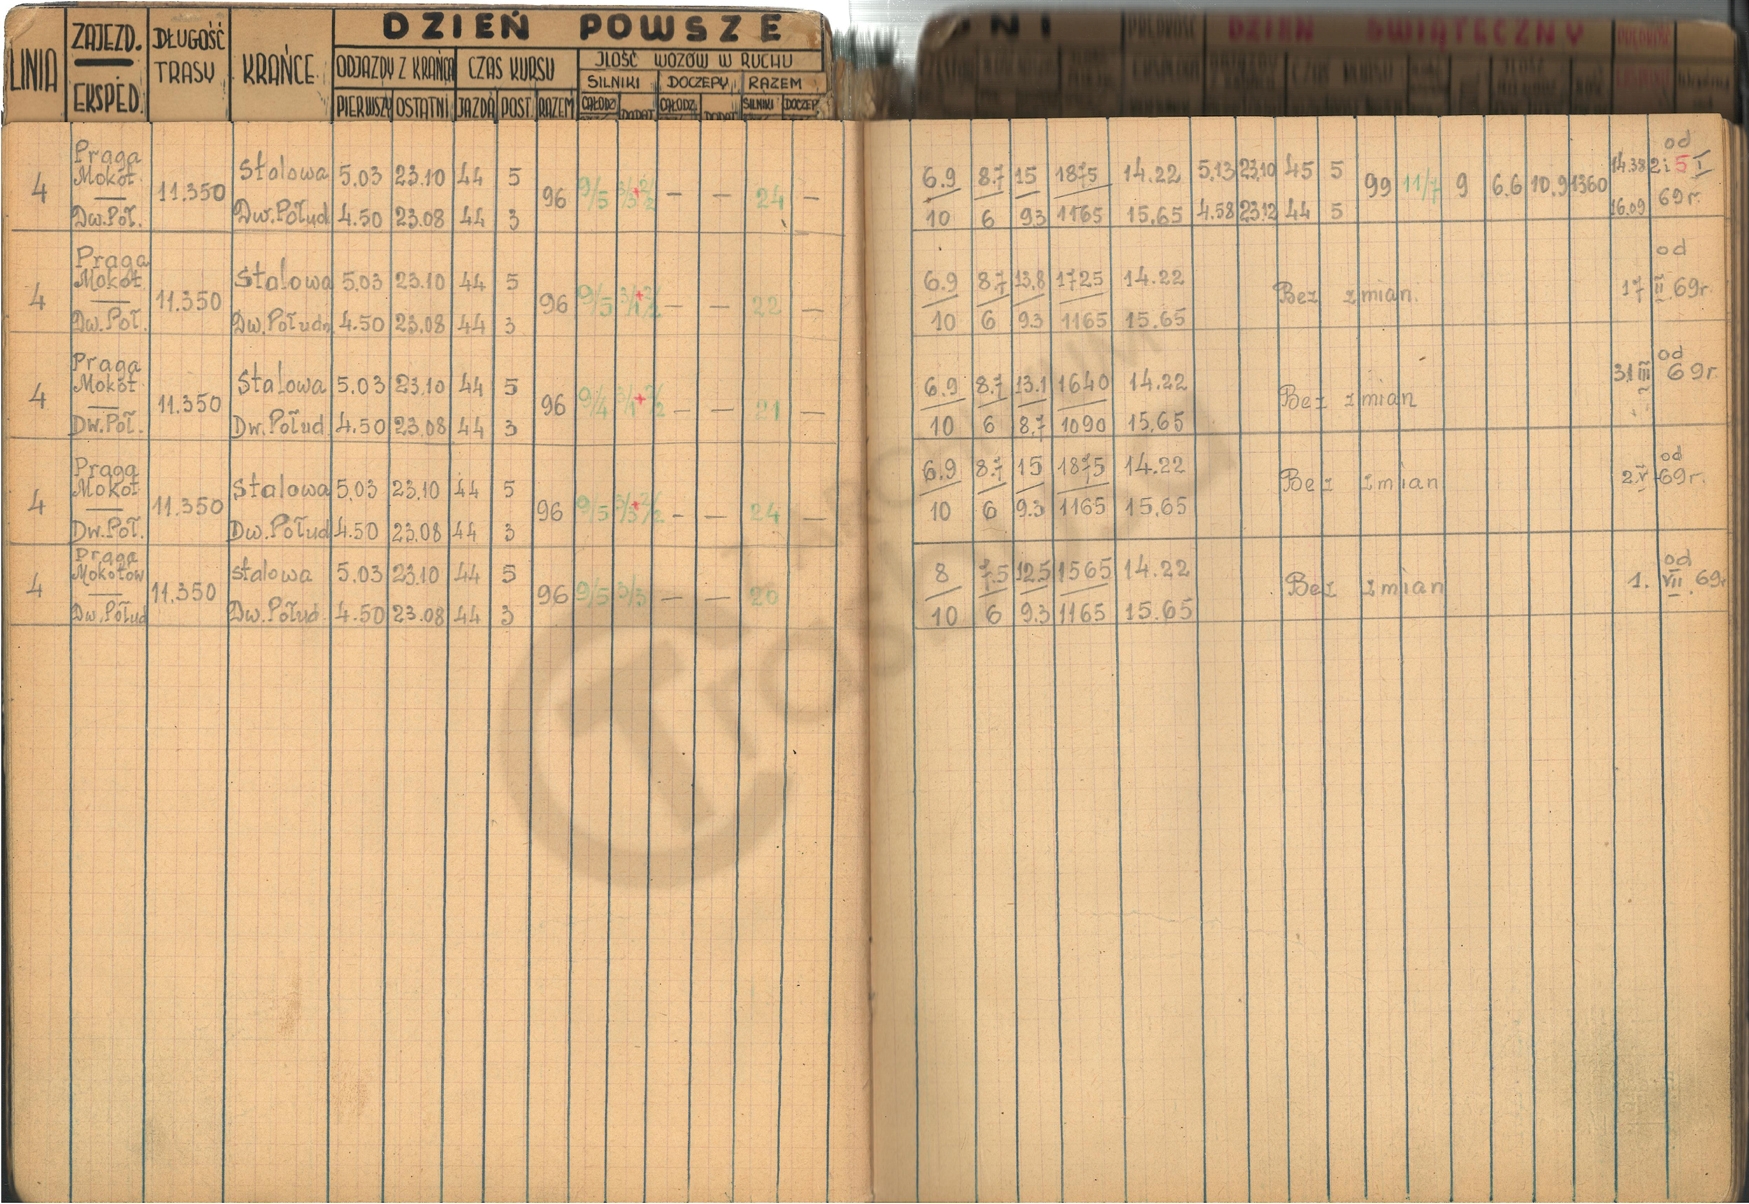 DZIEŃ POWSZE
DNI
DZIEŃ ŚWIĄTECZNY
LINIA
ZAJEZD.
EKSPED.
DŁUGOŚĆ
TRASY
KRAŃCE
ODJAZDY Z KRAŃCA
CZAS KURSU
ILOŚĆ WOZÓW W RUCHU
SILNIKI DOCZEPY RAZEM
PIERWSZY OSTATNI JAZDA POST. RAZEM CAŁODZ DODAT CAŁODZ DODAT SILNIKI DOCZEP
od
Praga
Mokot
Stalowa 5.03 23.10 44 5 6.9 8.7 15 1875 14.22 5.13 23.10 45 5 14.38 2i5 I
4 11.350 96 9/5 24 99 11/7 9 6.6 10.9 1360 69r.
Dw.Poł. Dw.Połud 4.50 23.08 44 3 10 6 9.3 1165 15.65 4.58 23.12 44 5 16.09
od
Praga
Mokot
Stalowa 5.03 23.10 44 5 6.9 8.7 13,8 1725 14.22
4 11.350 96 9/5 22 Bez zmian. 17 II 69r.
Dw.Poł. Dw.Połudn 4.50 23.08 44 3 10 6 9.3 1165 15.65
od
Praga
Mokot
Stalowa 5.03 23.10 44 5 6.9 8.7 13.1 1640 14.22 31 III 69r.
4 11.350 96 9/4 21 Bez zmian
Dw.Poł. Dw.Połud 4.50 23.08 44 3 10 6 8,7 1090 15,65
od
Praga
Mokot
Stalowa 5,03 23.10 44 5 6.9 8.7 15 1875 14.22
4 11.350 96 9/5 24 Bez zmian 2.V 69r.
Dw.Poł. Dw.Połud 4.50 23.08 44 3 10 6 9.3 1165 15,65
od
Praga
Mokotów
Stalowa 5.03 23.10 44 5 8 7.5 12.5 1565 14.22
4 11.350 96 9/5 20 Bez zmian 1. VII.69r
Dw.Połud Dw.Połud. 4.50 23.08 44 3 10 6 9.3 1165 15.65